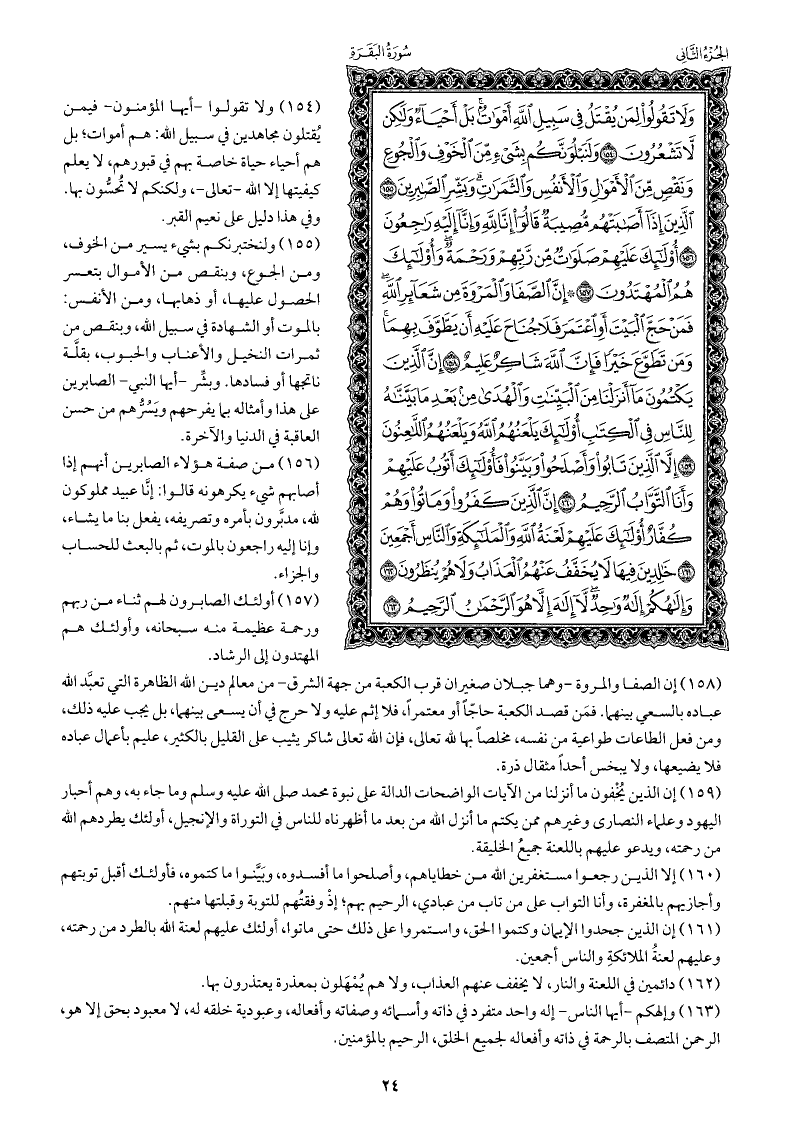 الجُزْءُ الثَّانِي
سُورَةُ البَقَرَةِ
وَلَا تَقُولُوا۟ لِمَن يُقْتَلُ فِى سَبِيلِ ٱللَّهِ أَمْوَٰتٌۢ ۚ بَلْ أَحْيَآءٌ وَلَـٰكِن
لَّا تَشْعُرُونَ ١٥٤ وَلَنَبْلُوَنَّكُم بِشَىْءٍ مِّنَ ٱلْخَوْفِ وَٱلْجُوعِ
وَنَقْصٍ مِّنَ ٱلْأَمْوَٰلِ وَٱلْأَنفُسِ وَٱلثَّمَرَٰتِ ۗ وَبَشِّرِ ٱلصَّـٰبِرِينَ ١٥٥
ٱلَّذِينَ إِذَآ أَصَـٰبَتْهُم مُّصِيبَةٌ قَالُوٓا۟ إِنَّا لِلَّهِ وَإِنَّآ إِلَيْهِ رَٰجِعُونَ
١٥٦ أُو۟لَـٰٓئِكَ عَلَيْهِمْ صَلَوَٰتٌ مِّن رَّبِّهِمْ وَرَحْمَةٌ ۖ وَأُو۟لَـٰٓئِكَ
هُمُ ٱلْمُهْتَدُونَ ١٥٧ ۞ إِنَّ ٱلصَّفَا وَٱلْمَرْوَةَ مِن شَعَآئِرِ ٱللَّهِ ۖ
فَمَنْ حَجَّ ٱلْبَيْتَ أَوِ ٱعْتَمَرَ فَلَا جُنَاحَ عَلَيْهِ أَن يَطَّوَّفَ بِهِمَا ۚ
وَمَن تَطَوَّعَ خَيْرًا فَإِنَّ ٱللَّهَ شَاكِرٌ عَلِيمٌ ١٥٨ إِنَّ ٱلَّذِينَ
يَكْتُمُونَ مَآ أَنزَلْنَا مِنَ ٱلْبَيِّنَـٰتِ وَٱلْهُدَىٰ مِنۢ بَعْدِ مَا بَيَّنَّـٰهُ
لِلنَّاسِ فِى ٱلْكِتَـٰبِ أُو۟لَـٰٓئِكَ يَلْعَنُهُمُ ٱللَّهُ وَيَلْعَنُهُمُ ٱللَّـٰعِنُونَ
١٥٩ إِلَّا ٱلَّذِينَ تَابُوا۟ وَأَصْلَحُوا۟ وَبَيَّنُوا۟ فَأُو۟لَـٰٓئِكَ أَتُوبُ عَلَيْهِمْ
وَأَنَا ٱلتَّوَّابُ ٱلرَّحِيمُ ١٦٠ إِنَّ ٱلَّذِينَ كَفَرُوا۟ وَمَاتُوا۟ وَهُمْ
كُفَّارٌ أُو۟لَـٰٓئِكَ عَلَيْهِمْ لَعْنَةُ ٱللَّهِ وَٱلْمَلَـٰٓئِكَةِ وَٱلنَّاسِ أَجْمَعِينَ
١٦١ خَـٰلِدِينَ فِيهَا لَا يُخَفَّفُ عَنْهُمُ ٱلْعَذَابُ وَلَا هُمْ يُنظَرُونَ ١٦٢
وَإِلَـٰهُكُمْ إِلَـٰهٌ وَٰحِدٌ ۖ لَّآ إِلَـٰهَ إِلَّا هُوَ ٱلرَّحْمَـٰنُ ٱلرَّحِيمُ ١٦٣
(١٥٤) ولا تقولوا -أيها المؤمنون- فيمن
يُقتلون مجاهدين في سبيل الله: هم أموات؛ بل
هم أحياء حياة خاصة بهم في قبورهم، لا يعلم
كيفيتها إلا الله -تعالى-، ولكنكم لا تُحسُّون بها.
وفي هذا دليل على نعيم القبر.
(١٥٥) ولنختبرنكم بشيء يسير من الخوف،
ومن الجوع، وبنقص من الأموال بتعسر
الحصول عليها، أو ذهابها، ومن الأنفس:
بالموت أو الشهادة في سبيل الله، وبنقص من
ثمرات النخيل والأعناب والحبوب، بقلَّة
ناتجها أو فسادها. وبشِّر -أيها النبي- الصابرين
على هذا وأمثاله بما يفرحهم ويَسُرُّهم من حسن
العاقبة في الدنيا والآخرة.
(١٥٦) من صفة هؤلاء الصابرين أنهم إذا
أصابهم شيء يكرهونه قالوا: إنَّا عبيد مملوكون
لله، مدبَّرون بأمره وتصريفه، يفعل بنا ما يشاء،
وإنا إليه راجعون بالموت، ثم بالبعث للحساب
والجزاء.
(١٥٧) أولئك الصابرون لهم ثناء من ربهم
ورحمة عظيمة منه سبحانه، وأولئك هم
المهتدون إلى الرشاد.
(١٥٨) إن الصفا والمروة -وهما جبلان صغيران قرب الكعبة من جهة الشرق- من معالم دين الله الظاهرة التي تعبَّد الله
عباده بالسعي بينهما. فمَن قصد الكعبة حاجّاً أو معتمراً، فلا إثم عليه ولا حرج في أن يسعى بينهما، بل يجب عليه ذلك،
ومن فعل الطاعات طواعية من نفسه، مخلصاً بها لله تعالى، فإن الله تعالى شاكر يثيب على القليل بالكثير، عليم بأعمال عباده
فلا يضيعها، ولا يبخس أحداً مثقال ذرة.
(١٥٩) إن الذين يُخْفون ما أنزلنا من الآيات الواضحات الدالة على نبوة محمد صلى الله عليه وسلم وما جاء به، وهم أحبار
اليهود وعلماء النصارى وغيرهم ممن يكتم ما أنزل الله من بعد ما أظهرناه للناس في التوراة والإنجيل، أولئك يطردهم الله
من رحمته، ويدعو عليهم باللعنة جميعُ الخليقة.
(١٦٠) إلا الذين رجعوا مستغفرين الله من خطاياهم، وأصلحوا ما أفسدوه، وبَيَّنوا ما كتموه، فأولئك أقبل توبتهم
وأجازيهم بالمغفرة، وأنا التواب على من تاب من عبادي، الرحيم بهم؛ إذْ وفقتُهم للتوبة وقبلتها منهم.
(١٦١) إن الذين جحدوا الإيمان وكتموا الحق، واستمروا على ذلك حتى ماتوا، أولئك عليهم لعنة الله بالطرد من رحمته،
وعليهم لعنةُ الملائكةِ والناس أجمعين.
(١٦٢) دائمين في اللعنة والنار، لا يخفف عنهم العذاب، ولا هم يُمْهَلون بمعذرة يعتذرون بها.
(١٦٣) وإلهكم -أيها الناس- إله واحد متفرد في ذاته وأسمائه وصفاته وأفعاله، وعبودية خلقه له، لا معبود بحق إلا هو،
الرحمن المتصف بالرحمة في ذاته وأفعاله لجميع الخلق، الرحيم بالمؤمنين.
٢٤